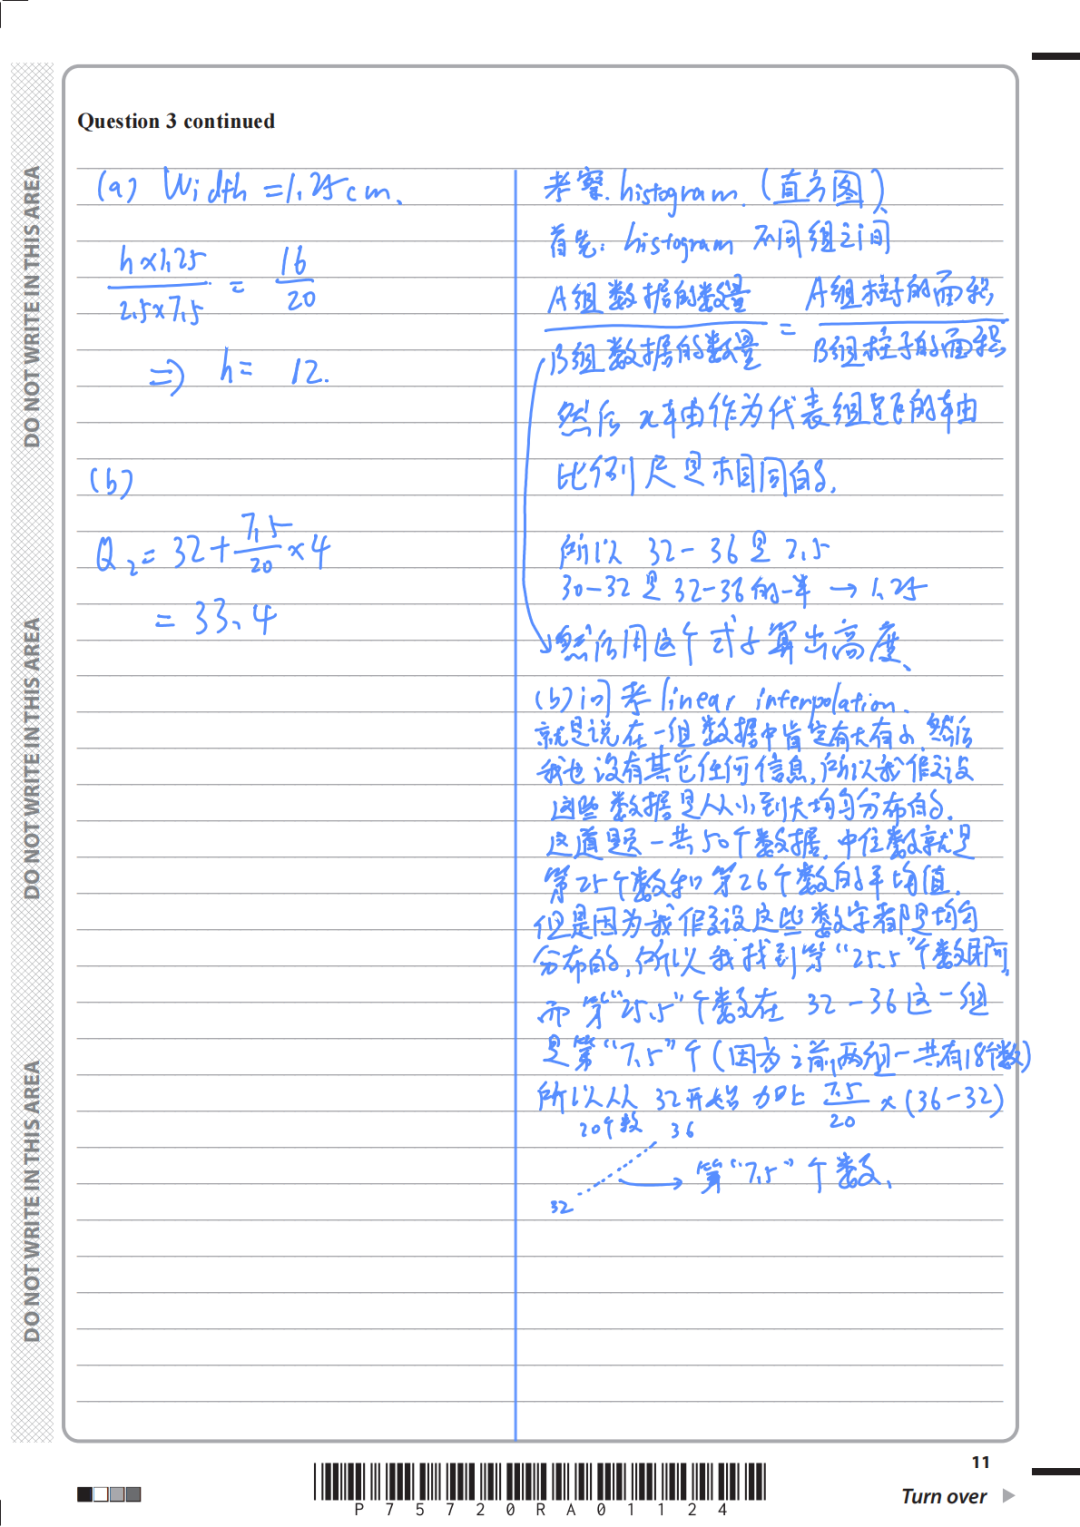 Question 3 continued
(a) Width = 1.25cm.
h×1.25 / 2.5×7.5 = 16 / 20
⇒ h = 12.
(b)
Q₂ = 32 + 7.5/20 × 4
= 33.4
考察. histogram. (直方图).
首先: histogram 不同组之间
A组数据的数量 / B组数据的数量 = A组柱子的面积 / B组柱子的面积
然后 x轴由作为代表组距的轴由
比例尺是相同的.
所以 32-36 是 2.5
30-32 是 32-36 的一半 → 1.25
然后用这个式子算出高度.
(b)问考 linear interpolation.
就是说在一组数据中肯定有大有小, 然后
我也没有其它任何信息, 所以我假设
这些数据是从小到大均匀分布的.
这道题一共50个数据, 中位数就是
第25个数和第26个数的平均值.
但是因为我假设这些数字都是均匀
分布的, 所以我找到第"25.5"个数即可,
而第"25.5"个数在 32-36这一组
是第"7.5"个(因为之前两组一共有18个数)
所以从 32开始 加上 7.5/20 × (36-32)
20个数 36
→ 第"7.5"个数.
32
DO NOT WRITE IN THIS AREA
DO NOT WRITE IN THIS AREA
DO NOT WRITE IN THIS AREA
11
P75720RA01124
Turn over